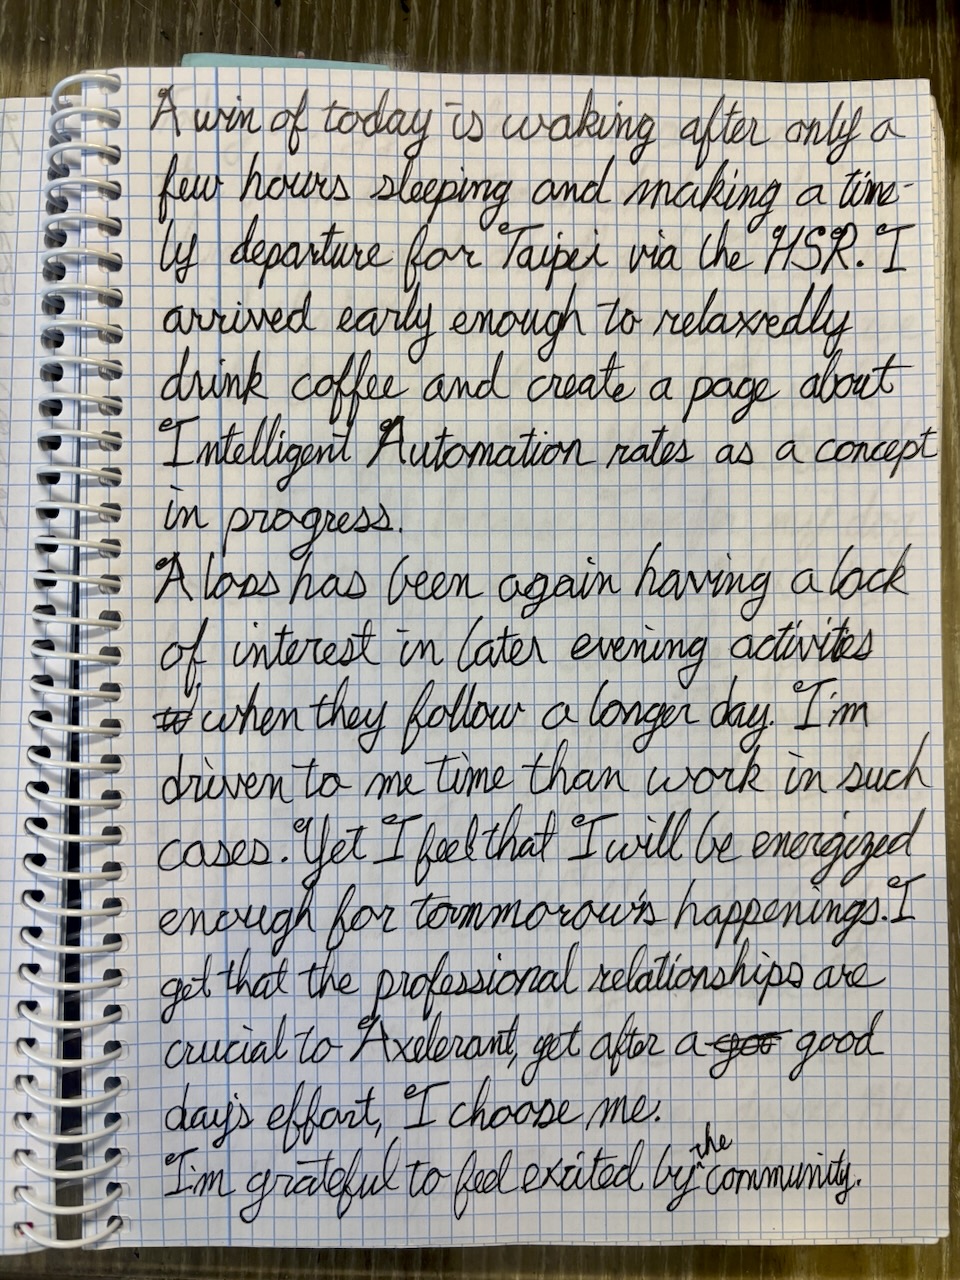 A win of today is waking after only a
few hours sleeping and making a time-
ly departure for Taipei via the HSR. I
arrived early enough to relaxedly
drink coffee and create a page about
Intelligent Automation rates as a concept
in progress.
A loss has been again having a lack
of interest in later evening activites
to when they follow a longer day. I'm
driven to me time than work in such
cases. Yet I feel that I will be energized
enough for tommorow's happenings. I
get that the professional relationships are
crucial to Axelerant, yet after a goo good
day's effort, I choose me.
I'm grateful to feel excited by the community.